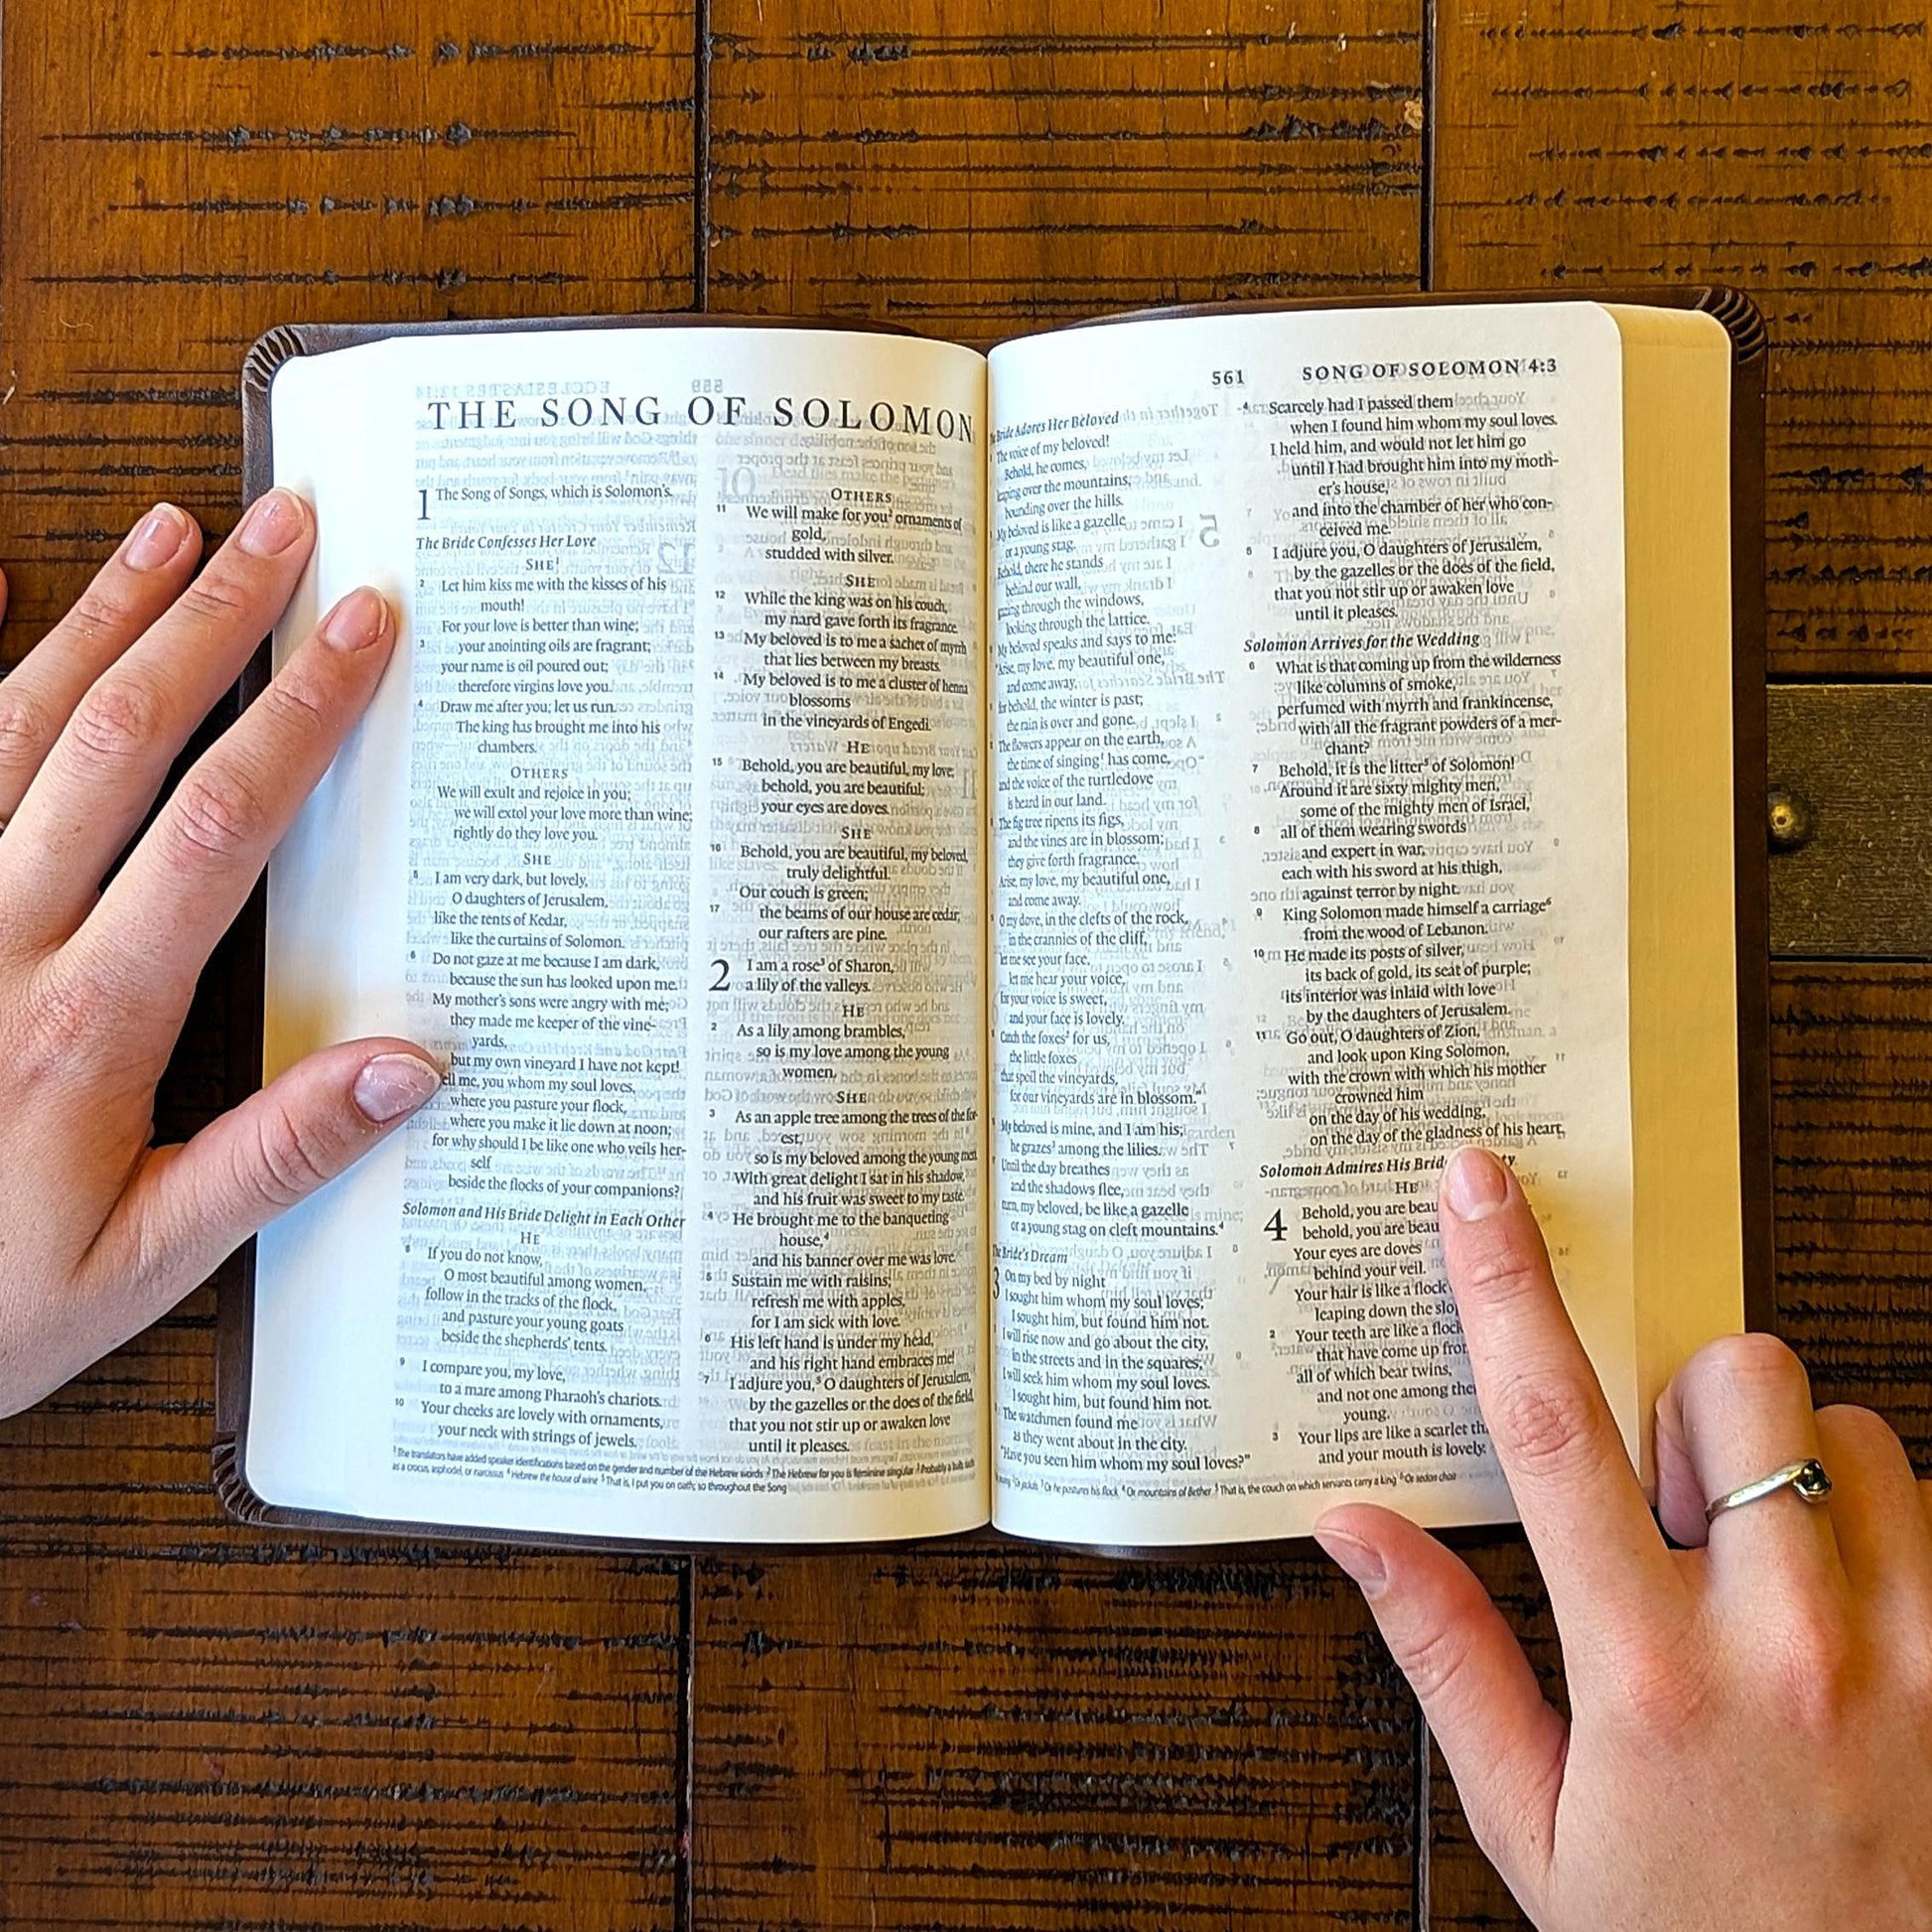 THE SONG OF SOLOMON
1 The Song of Songs, which is Solomon's.
The Bride Confesses Her Love
SHE1
2 Let him kiss me with the kisses of his
mouth!
For your love is better than wine;
3 your anointing oils are fragrant;
your name is oil poured out;
therefore virgins love you.
4 Draw me after you; let us run.
The king has brought me into his
chambers.
OTHERS
We will exult and rejoice in you;
we will extol your love more than wine;
rightly do they love you.
SHE
5 I am very dark, but lovely,
O daughters of Jerusalem,
like the tents of Kedar,
like the curtains of Solomon.
6 Do not gaze at me because I am dark,
because the sun has looked upon me.
My mother's sons were angry with me;
they made me keeper of the vine-
yards,
but my own vineyard I have not kept!
ell me, you whom my soul loves,
where you pasture your flock,
where you make it lie down at noon;
for why should I be like one who veils her-
self
beside the flocks of your companions?
Solomon and His Bride Delight in Each Other
HE
8 If you do not know,
O most beautiful among women,
follow in the tracks of the flock,
and pasture your young goats
beside the shepherds' tents.
9 I compare you, my love,
to a mare among Pharaoh's chariots.
10 Your cheeks are lovely with ornaments,
your neck with strings of jewels.
OTHERS
11 We will make for you2 ornaments of
gold,
studded with silver.
SHE
12 While the king was on his couch,
my nard gave forth its fragrance.
13 My beloved is to me a sachet of myrrh
that lies between my breasts.
14 My beloved is to me a cluster of henna
blossoms
in the vineyards of Engedi.
HE
15 Behold, you are beautiful, my love;
behold, you are beautiful;
your eyes are doves.
SHE
16 Behold, you are beautiful, my beloved,
truly delightful.
Our couch is green;
17 the beams of our house are cedar;
our rafters are pine.
2 I am a rose3 of Sharon,
a lily of the valleys.
HE
2 As a lily among brambles,
so is my love among the young
women.
SHE
3 As an apple tree among the trees of the for-
est,
so is my beloved among the young men.
With great delight I sat in his shadow,
and his fruit was sweet to my taste.
4 He brought me to the banqueting
house,4
and his banner over me was love.
5 Sustain me with raisins;
refresh me with apples,
for I am sick with love.
6 His left hand is under my head,
and his right hand embraces me!
7 I adjure you,5 O daughters of Jerusalem,
by the gazelles or the does of the field,
that you not stir up or awaken love
until it pleases.
1 The translators have added speaker identifications based on the gender and number of the Hebrew words 2 The Hebrew for you is feminine singular 3 Probably a bulb such
as a crocus, asphodel, or narcissus 4 Hebrew the house of wine 5 That is, I put you on oath; so throughout the Song
561 SONG OF SOLOMON 4:3
Bride Adores Her Beloved
The voice of my beloved!
Behold, he comes,
leaping over the mountains,
bounding over the hills.
My beloved is like a gazelle
or a young stag.
Behold, there he stands
behind our wall,
through the windows,
looking through the lattice.
My beloved speaks and says to me:
"Arise, my love, my beautiful one,
and come away,
for behold, the winter is past;
the rain is over and gone.
The flowers appear on the earth,
the time of singing1 has come,
and the voice of the turtledove
is heard in our land.
The fig tree ripens its figs,
and the vines are in blossom;
they give forth fragrance.
Arise, my love, my beautiful one,
and come away.
O my dove, in the clefts of the rock,
in the crannies of the cliff,
let me see your face,
let me hear your voice,
for your voice is sweet,
and your face is lovely.
Catch the foxes2 for us,
the little foxes
that spoil the vineyards,
for our vineyards are in blossom."
My beloved is mine, and I am his;
he grazes3 among the lilies.
Until the day breathes
and the shadows flee,
turn, my beloved, be like a gazelle
or a young stag on cleft mountains.4
The Bride's Dream
3 On my bed by night
I sought him whom my soul loves;
I sought him, but found him not.
I will rise now and go about the city,
in the streets and in the squares;
I will seek him whom my soul loves.
I sought him, but found him not.
The watchmen found me
as they went about in the city.
"Have you seen him whom my soul loves?"
4 Scarcely had I passed them
when I found him whom my soul loves.
I held him, and would not let him go
until I had brought him into my moth-
er's house,
and into the chamber of her who con-
ceived me.
5 I adjure you, O daughters of Jerusalem,
by the gazelles or the does of the field,
that you not stir up or awaken love
until it pleases.
Solomon Arrives for the Wedding
6 What is that coming up from the wilderness
like columns of smoke,
perfumed with myrrh and frankincense,
with all the fragrant powders of a mer-
chant?
7 Behold, it is the litter5 of Solomon!
Around it are sixty mighty men,
some of the mighty men of Israel,
8 all of them wearing swords
and expert in war,
each with his sword at his thigh,
against terror by night.
9 King Solomon made himself a carriage6
from the wood of Lebanon.
10 He made its posts of silver,
its back of gold, its seat of purple;
its interior was inlaid with love
by the daughters of Jerusalem.
11 Go out, O daughters of Zion,
and look upon King Solomon,
with the crown with which his mother
crowned him
on the day of his wedding,
on the day of the gladness of his heart.
Solomon Admires His Brid ty
HE
4 Behold, you are beau
behold, you are beau
Your eyes are doves
behind your veil.
Your hair is like a flock
leaping down the slo
2 Your teeth are like a flock
that have come up fro
all of which bear twins,
and not one among the
young.
3 Your lips are like a scarlet th
and your mouth is lovely.
2 Or jackals 3 Or he pastures his flock 4 Or mountains of Bether 5 That is, the couch on which servants carry a king 6 Or sedan chair